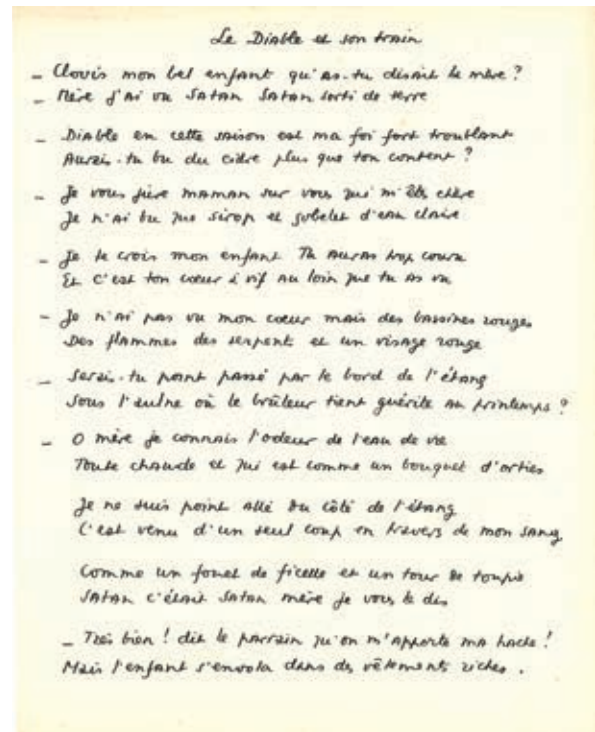 Le Diable et son train
- Clovis mon bel enfant qu'as-tu disait la mère ?
- Mère j'ai vu Satan Satan sorti de terre
- Diable en cette saison est ma foi fort troublant
Aurais-tu bu du cidre plus que ton content ?
- Je vous jure maman sur vous qui m'êtes chère
Je n'ai bu que sirop et gobelet d'eau claire
- Je te crois mon enfant Tu auras trop couru
Et c'est ton coeur à vif au loin que tu as vu
- Je n'ai pas vu mon coeur mais des bassines rouges
Des flammes des serpents et un visage rouge
- Serais-tu point passé par le bord de l'étang
Sous l'aulne où le brûleur tient guérite au printemps ?
- O mère je connais l'odeur de l'eau de vie
Toute chaude et qui est comme un bouquet d'orties
Je ne suis point allé du côté de l'étang
C'est venu d'un seul coup en travers de mon sang
Comme un fouet de ficelle et un tour de toupie
Satan c'était Satan mère je vous le dis
- Très bien ! dit le parrain qu'on m'apporte ma hache !
Mais l'enfant s'envola dans des vêtements riches.